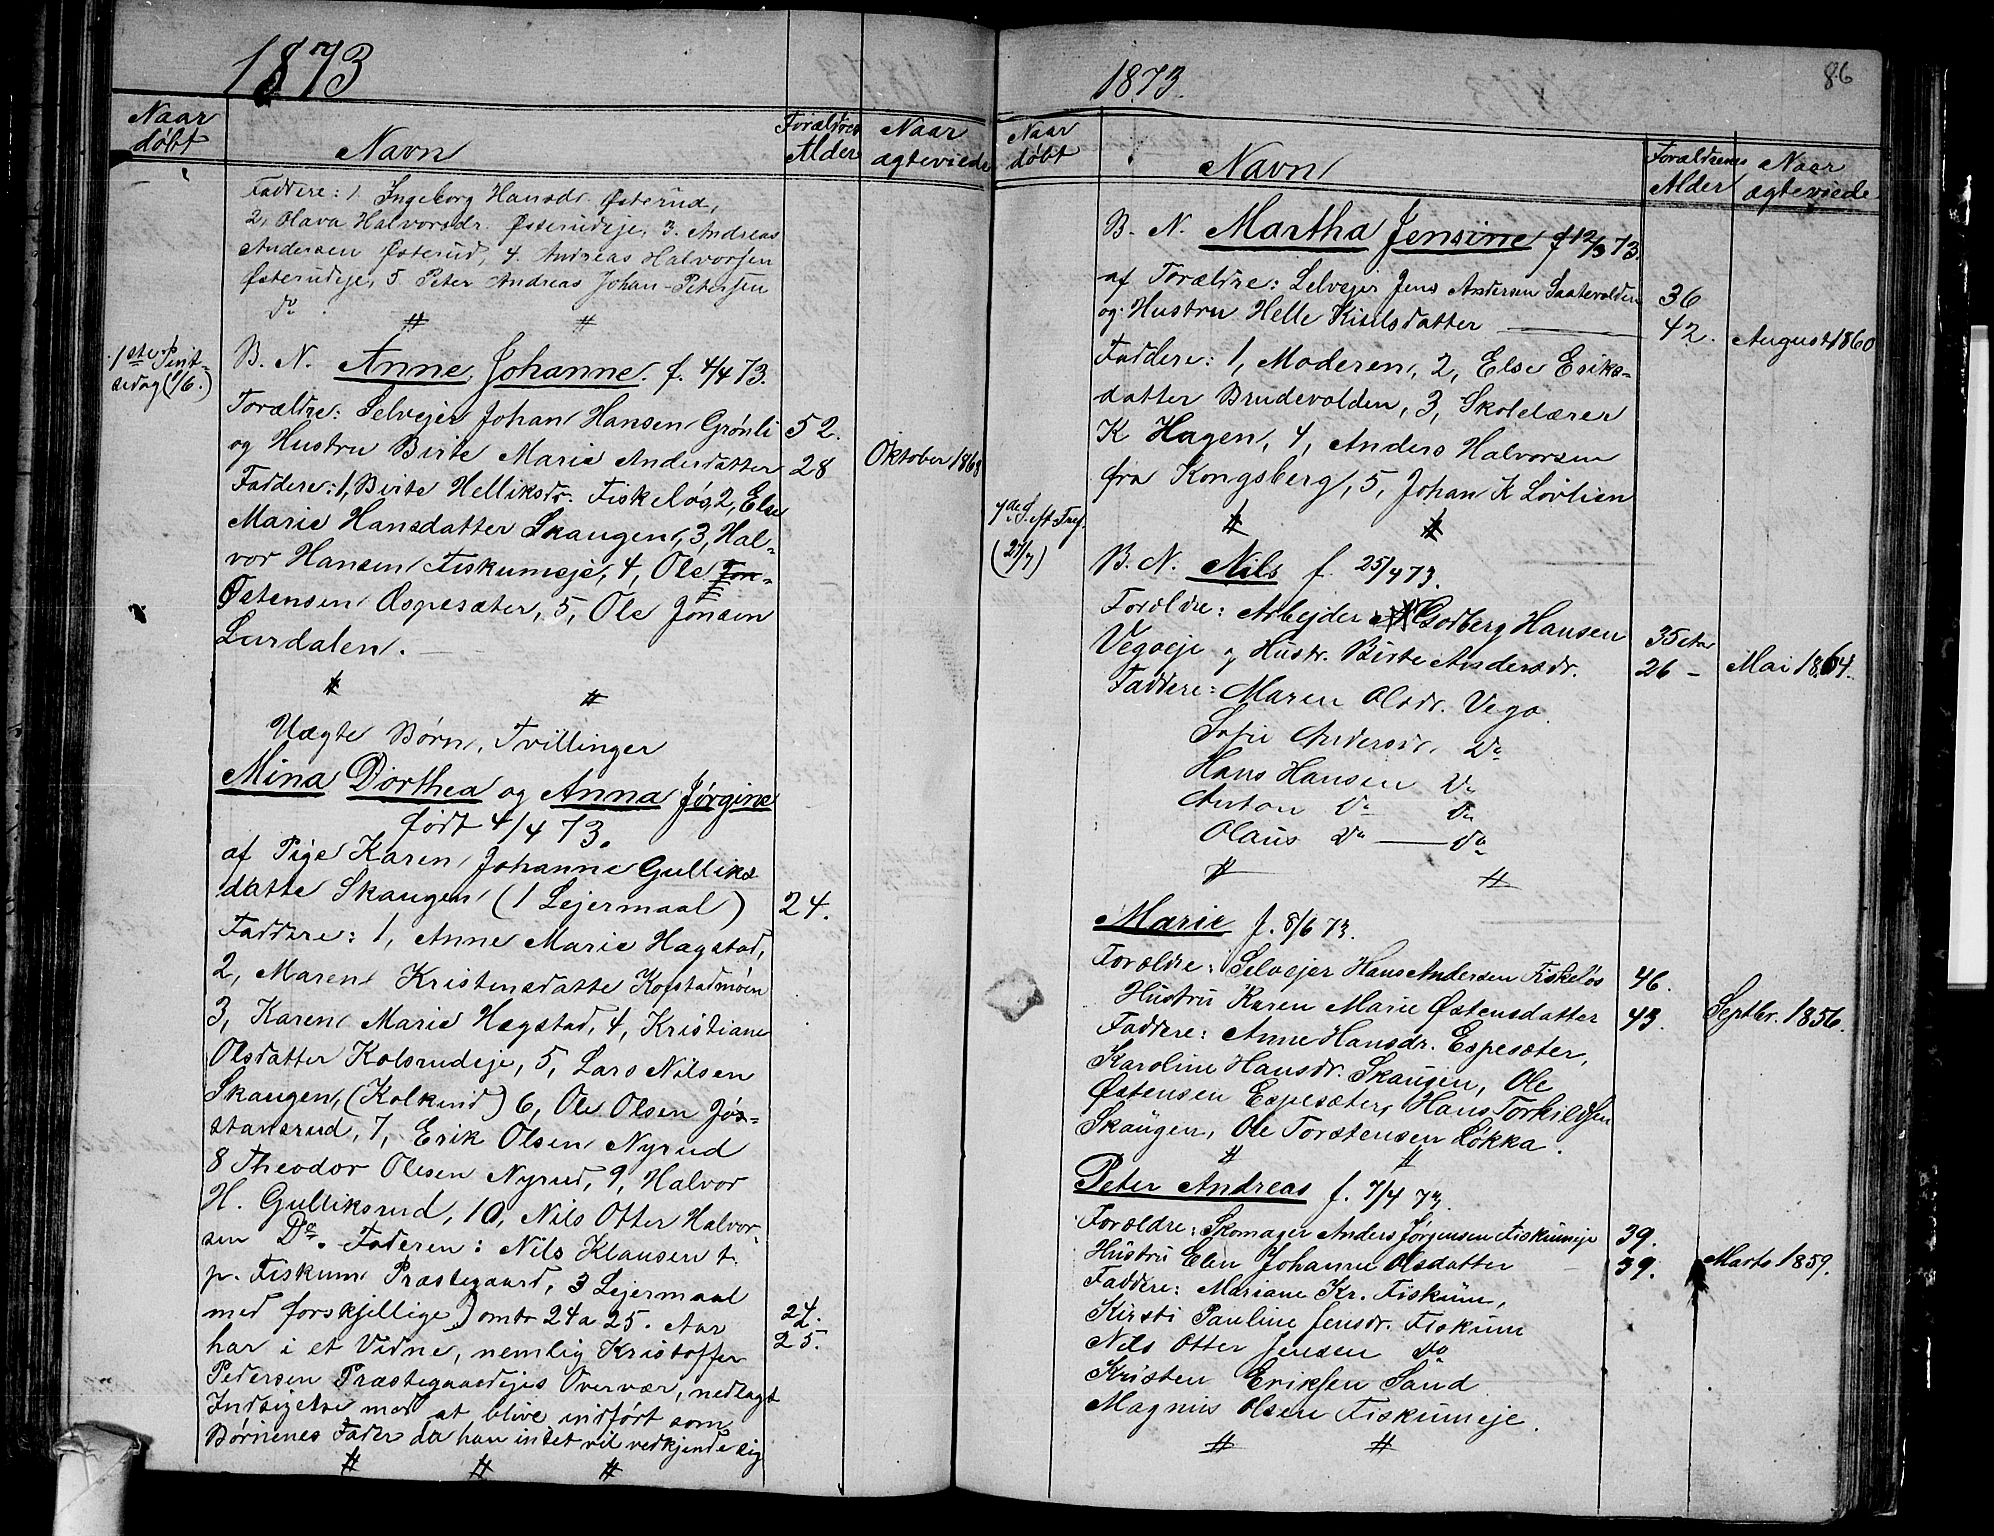 1873
Naar døbt
Navn
Forældres Alder
Naar ægteviede
Faddere: 1 Ingeborg Hansdr. Østerud,
2, Olava Halvorsdr. Østerudeje, 3. Andreas
Andersen Østerud, 4. Andreas Halvorsen
Østerudeje, 5 Peter Andreas Johan-Petersen
do
1ste Pint-
sedag (1/6.)
B. N. Anne Johanne. f. 4/4 73.
Forældre: Selvejer Johan Hansen Grønli 52.
og Hustru Birte Marie Andersdatter 28 Oktober 1868
Faddere: 1, Birte Helliksdr. Fiskeløs, 2, Else
Marie Hansdatter Skaugen, 3, Hal-
vor Hansen Fiskumeje, 4, Ole Jon-
Østensen Æspesæter, 5, Ole Jonsen
Lurdalen.
Uægte Børn, Tvillinger
Mina Dorthea og Anna Jørgine
født 4/4 73.
af Pige Karen Johanne Gulliks
datte Skaugen (1 Lejermaal) 24.
Faddere: 1, Anne Marie Hagstad,
2, Maren Kristensdatte Kopstadmoen
3, Karen Marie Hægstad, 4, Kristiane
Olsdatter Kolsrudeje, 5, Lars Nilsen
Skaugen, (Kolkind) 6, Ole Olsen Jør-
stansrud, 7, Erik Olsen Nyrud
8 Theodor Olesen Nyrud, 9, Halvor
H. Gulliksrud, 10, Nils Otter Halvor-
sen Do. Faderen: Nils Klausen t.
p. Fiskum Præstegaard, 3 Lejermaal
med forskjellige) omtr 24 a 25. Aar 24.
har i et Vidne, nemlig Kristoffer 25.
Pedersen Præstegaardejes Overvær, nedlagt
Indsigelse mod at blive indført som
Børnenes Fader da han intet vil vedkjende sig
1873.
86
Naar døbt
Navn
Forældrenes Alder
Naar ægteviede
B. N. Martha Jensine f 12/3 73.
af Forældre: Selvejer Jens Andersen Saatevolden 36
og Hustru Helle Kittilsdatter 42. August 1860
Faddere: 1, Moderen, 2, Else Eriks-
datter Brudevolden, 3, Skolelærer
K Hagen, 4, Anders Halvorsen
fra Kongsberg, 5, Johan K Lövlien
7de S. eft. Tref.
(27/7)
B. N. Nils f. 25/4 73.
Forældre: Arbejder Godberg Hansen 35 Aar
Vegoeje og Hustr. Birte Andersdr. 26 – Mai 1864.
Faddere: Maren Olsdr. Vego.
Sofie Andersdr. Do
Hans Hansen Do
Anton Do Do
Olaus Do — Do
Marie f. 8/6 73.
Forældre: Selvejer Hans Andersen Fiskeløs 46.
Hustru Karen Marie Østensdatter 43. Septbr. 1856.
Faddere: Anne Hansdr. Espesæter,
Karoline Hansdr. Skaugen, Ole
Østensen Espesæter, Hans Torkildsen
Skaugen, Ole Torstensen Løkka.
Peter Andreas f. 7/4 73.
Forældre: Skomager Anders Jørgensen Fiskumeje 39.
Hustru Elen Johanne Olsdatter 39. Marts 1859.
Faddere: Mariane Kr. Fiskum,
Kirsti Pauline Jensdr. Fiskum
Nils Otter Jensen Do
Kristen Eriksen Sand
Magnus Olsen Fiskumeje.